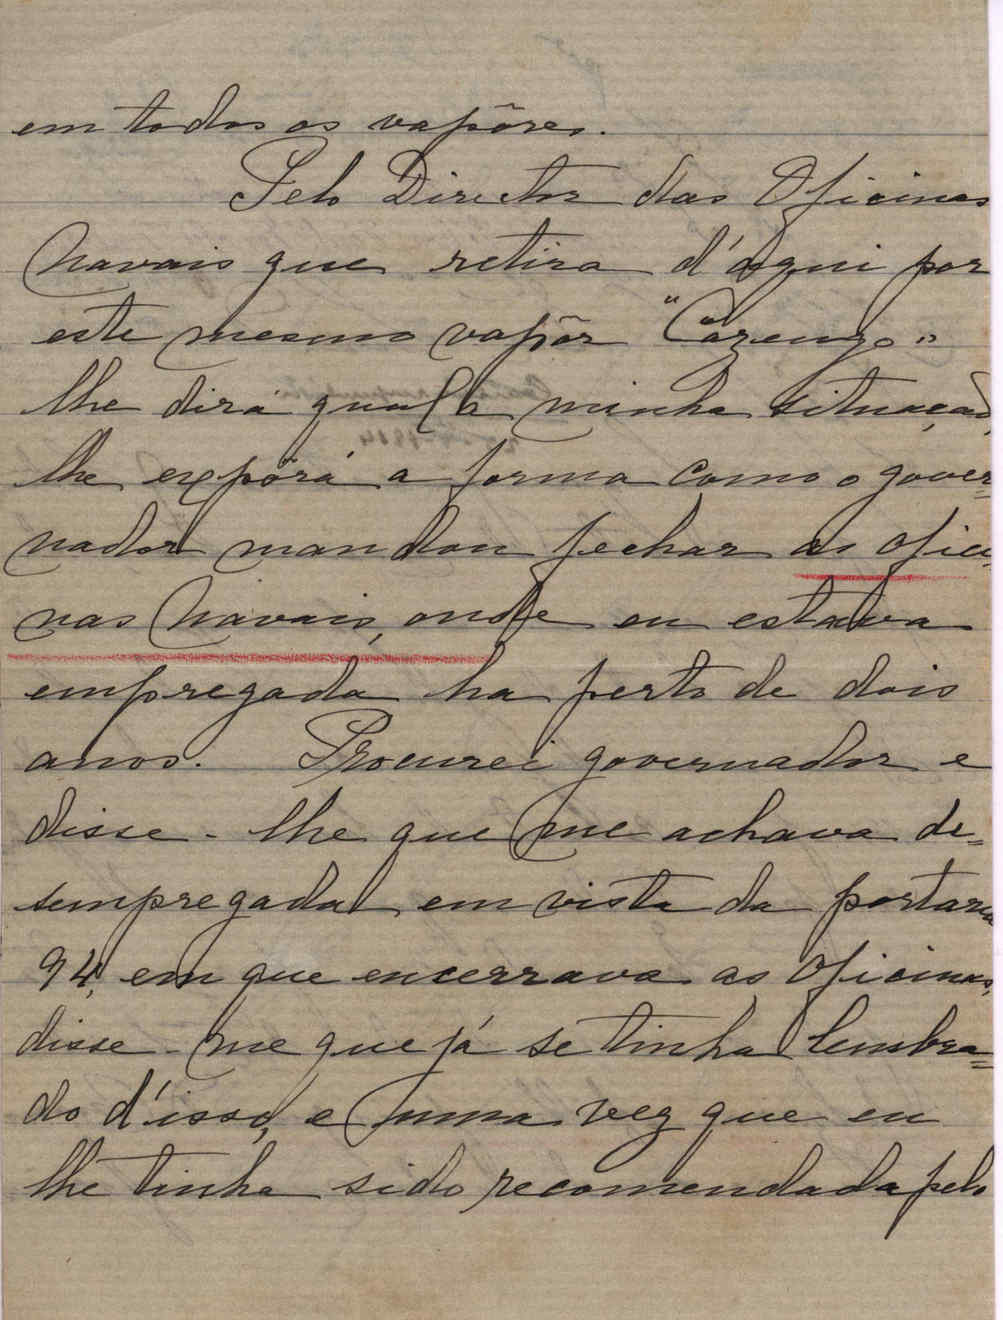 em todos os vapôres.
Pelo Director das Oficinas
Navais que retira d'aqui por
este mesmo vapôr "Cazengo"
lhe dirá qual a minha situação,
lhe expôrá a forma como o gover=
nador mandou fechar as ofici-
nas Navais, onde eu estava
empregada ha perto de dois
anos. Procurei governador e
disse-lhe que me achava de=
sempregada em vista da portaria
94, em que encerrava as Oficinas,
disse-me que já se tinha lembra=
do d'isso, e uma vez que eu
lhe tinha sido recomendada pelo